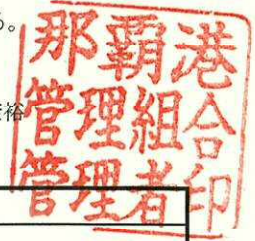 る。
裕
那覇港
管理組合
管理者印